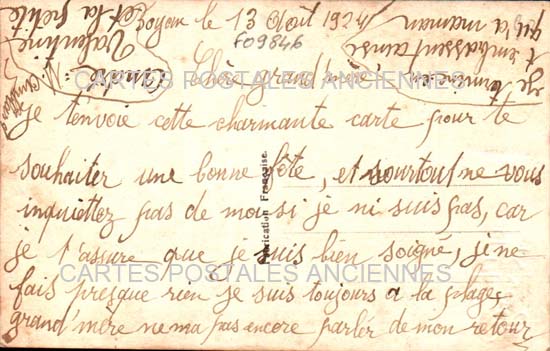 Royan le 13 Août 1924
F09846
Chère grand'mère
Je t'envoie cette charmante carte pour te
souhaiter une bonne fête, et surtout ne vous
inquiettez pas de moi si je ni suis pas, car
je t'assure que je suis bien soigné, je ne
fais presque rien je suis toujours a la plage,
grand'mère ne ma pas encore parler de mon retour
je termine en
t'embrassant ainsi
qu'a maman
et la petite
Valentine
André
Fabrication Française
CARTES POSTALES ANCIENNES
CARTES POSTALES ANCIENNES